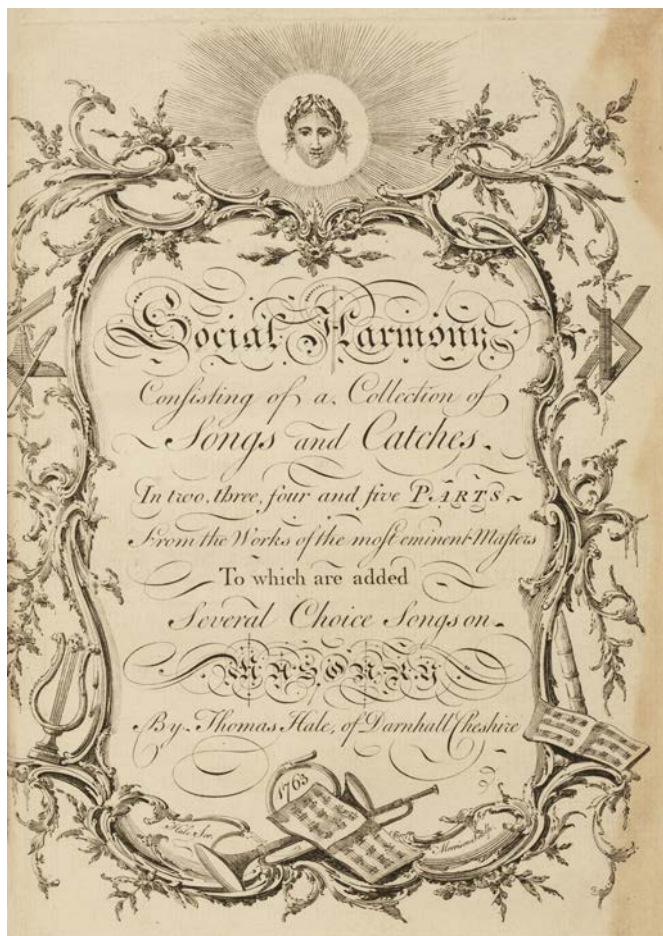 Social Harmony
Consisting of a Collection of
Songs and Catches.
In two, three, four and five PARTS
From the Works of the most eminent Masters
To which are added
Several Choice Songs on
MASONRY
By Thomas Hale, of Darnhall Cheshire
1763
Hale